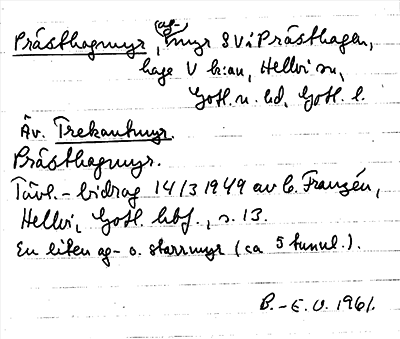 Prästhagmyr, (ag-)myr SV i Prästhagen,
hage V k:an, Hellvi sn,
Gotl. n. hd, Gotl. l.
Äv. Trekantmyr.
Prästhagmyr.
Tävl.-bidrag 14/3 1949 av C. Franzén,
Hellvi, Gotl. hbf., s. 13.
En liten ag- o. starrmyr (ca 5 tunnl.).
B.-E. O. 1961.